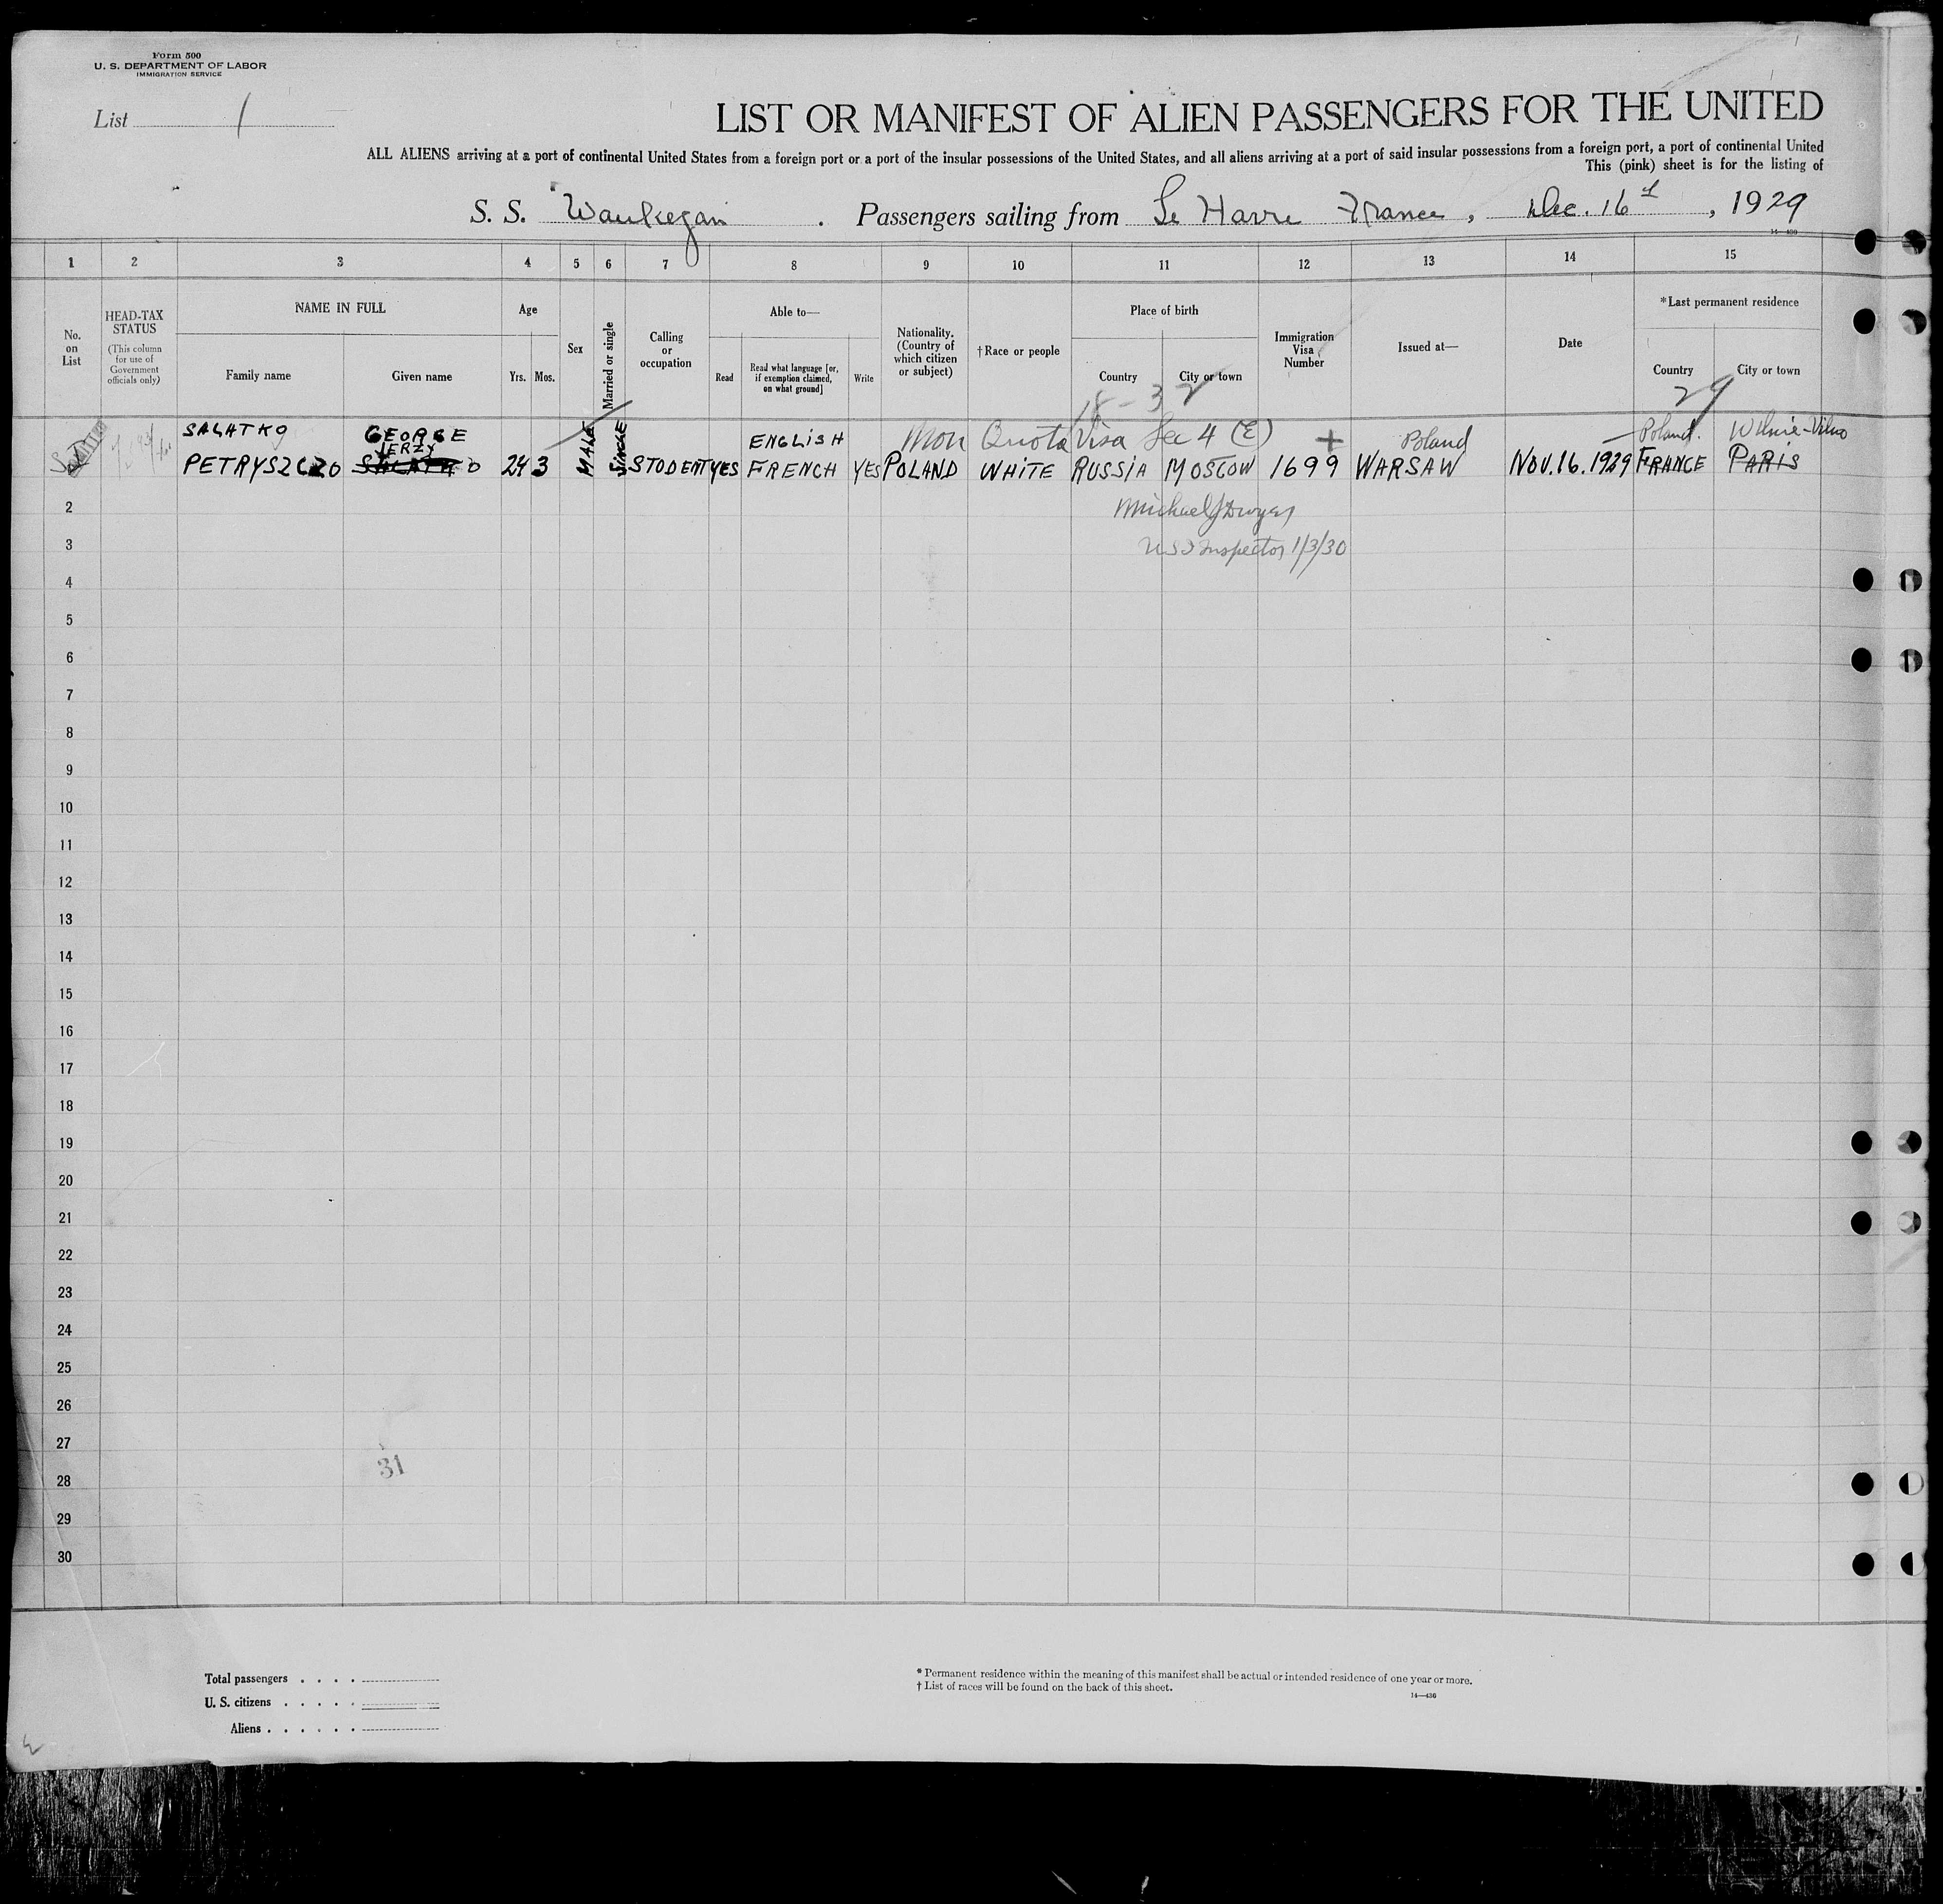 Form 500
U. S. DEPARTMENT OF LABOR
IMMIGRATION SERVICE
List 1
LIST OR MANIFEST OF ALIEN PASSENGERS FOR THE UNITED
ALL ALIENS arriving at a port of continental United States from a foreign port or a port of the insular possessions of the United States, and all aliens arriving at a port of said insular possessions from a foreign port, a port of continental United
This (pink) sheet is for the listing of
S. S. Waukegan . Passengers sailing from Le Havre France, Dec. 16th, 1929
14—430
1 2 3 4 5 6 7 8 9 10 11 12 13 14 15
No. on List
HEAD-TAX STATUS
(This column for use of Government officials only)
NAME IN FULL
Family name Given name
Age
Yrs. Mos.
Sex
Married or single
Calling or occupation
Able to—
Read
Read what language [or, if exemption claimed, on what ground]
Write
Nationality. (Country of which citizen or subject)
†Race or people
Place of birth
Country City or town
Immigration Visa Number
Issued at—
Date
*Last permanent residence
Country City or town
18-32 29
SALATKO GEORGE ENGLISH Non Quota Visa Sec 4 (E) + Poland Poland. Wilnie-Vilno
JERZY
PETRYSZCZO 24 3 MALE SINGLE STUDENT YES FRENCH YES POLAND WHITE RUSSIA MOSCOW 1699 WARSAW NOV. 16. 1929 FRANCE PARIS
2 Michael J Dwyer
3 U S I Inspector 1/3/30
4
5
6
7
8
9
10
11
12
13
14
15
16
17
18
19
20
21
22
23
24
25
26
27
31
28
29
30
Total passengers . . . .
U. S. citizens . . . . .
Aliens . . . . . .
* Permanent residence within the meaning of this manifest shall be actual or intended residence of one year or more.
† List of races will be found on the back of this sheet.
14—430